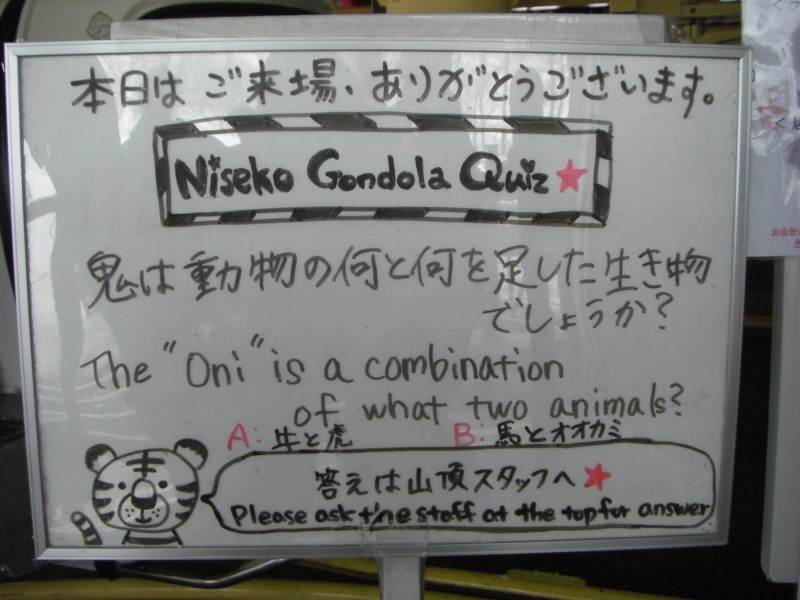 本日は ご来場、ありがとうございます。
Niseko Gondola Quiz
鬼は動物の何と何を足した生き物
でしょうか?
The "Oni" is a combination
of what two animals?
A: 牛と虎 B: 馬とオオカミ
答えは山頂スタッフへ
Please ask the staff at the top for answer